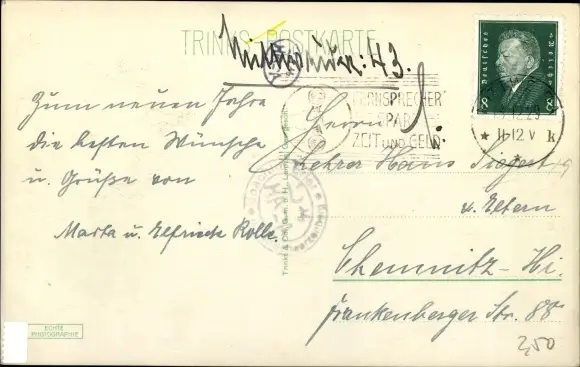 TRINKS-POSTKARTE
43.
Zum neuen Jahre
die besten Wünsche
u. Grüße von
Marta u. Elfriede Kolbe.
FERNSPRECHER
SPART
ZEIT UND GELD
Deutsches Reich
8 8
12.29
11-12 V
* k
Herrn
Lehrer Hans Siegert
u. Eltern
Chemnitz-Hi.
Frankenberger Str. 88
Trinks & Co. G.m.b.H. Leipzig
ECHTE
PHOTOGRAPHIE
2,50